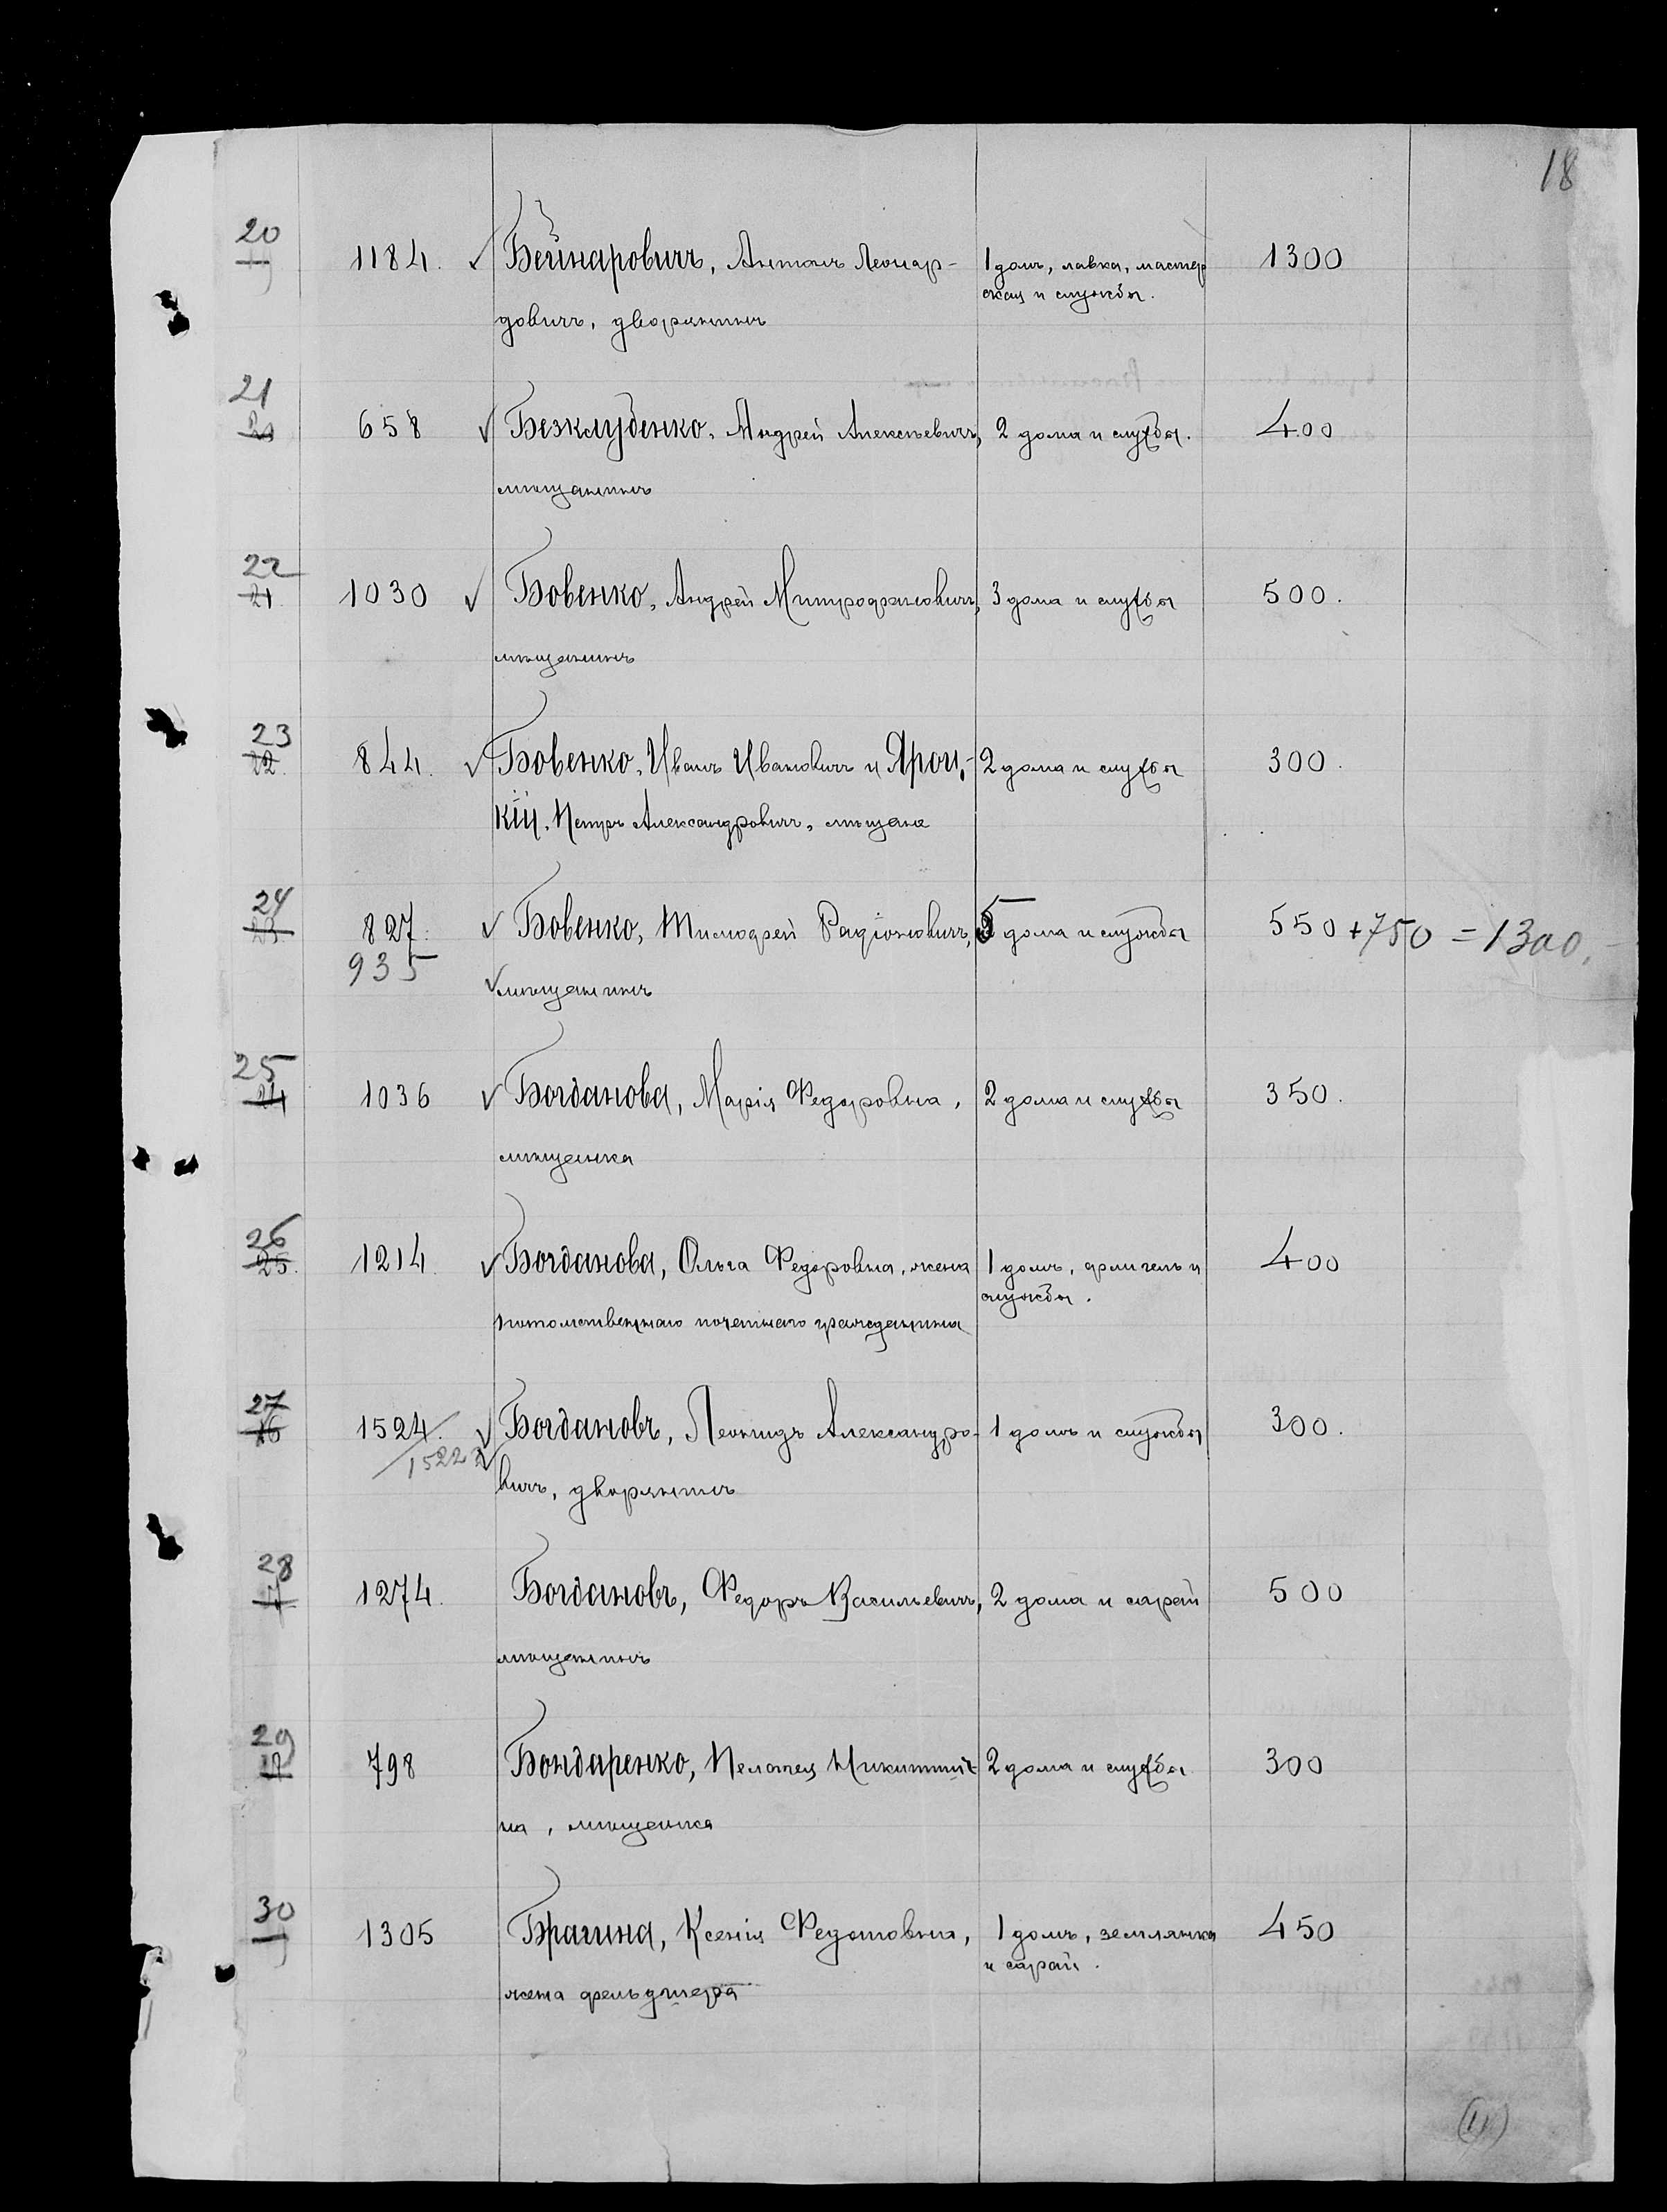 18
20
19
1184. ✓ Бейнаровичъ, Антонъ Леонар- 1 домъ, лавка, мастер 1300
ская и службы.
довичъ, дворянинъ
21
20
658 ✓ Безклубенко, Андрей Алексѣевичъ, 2 дома и службы. 400
мѣщанинъ
22
21.
1030 ✓ Бовенко, Андрей Митрофановичъ, 3 дома и службы 500.
мѣщанинъ
23
22.
844. ✓ Бовенко, Иванъ Ивановичъ и Яроц- 2 дома и службы 300.
кій, Петръ Александровичъ, мѣщане
24
23.
827. ✓ Бовенко, Тимофей Радіоновичъ, 5 дома и службы 550 + 750 = 1300.
935 ✓ мѣщанинъ
25
24
1036 ✓ Богданова, Марія Федоровна, 2 дома и службы 350.
мѣщанка
26
25.
1214. ✓ Богданова, Ольга Федоровна, жена 1 домъ, флигель и 400
службы.
потомственнаго почетнаго гражданина
27
26
1524. ✓ Богдановъ, Леонидъ Александро- 1 домъ и службы 300.
/1522 ✓
вичъ, дворянинъ
28
1274. Богдановъ, Федоръ Васильевичъ, 2 дома и сарай 500
мѣщанинъ
29
798 Бондаренко, Пелагея Никитиш- 2 дома и службы 300
на, мѣщанка
30
1305 Брагина, Ксенія Федотовна, 1 домъ, землянка 450
и сарай.
жена фельдшера